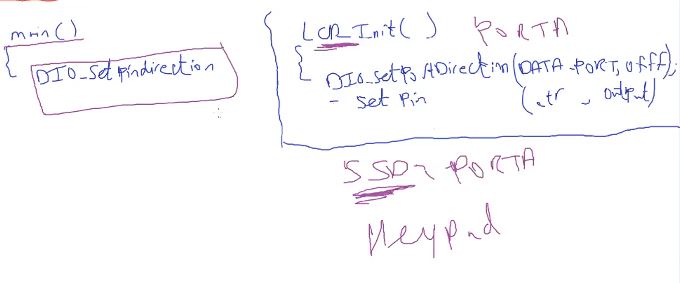 main()
{
DIO_setpindirection
{ LCR_Init( ) PORTA
{
DIO_setPortDirection(DATA_PORT, 0fff);
- set Pin ( , output)
SSD PORTA
Keypad